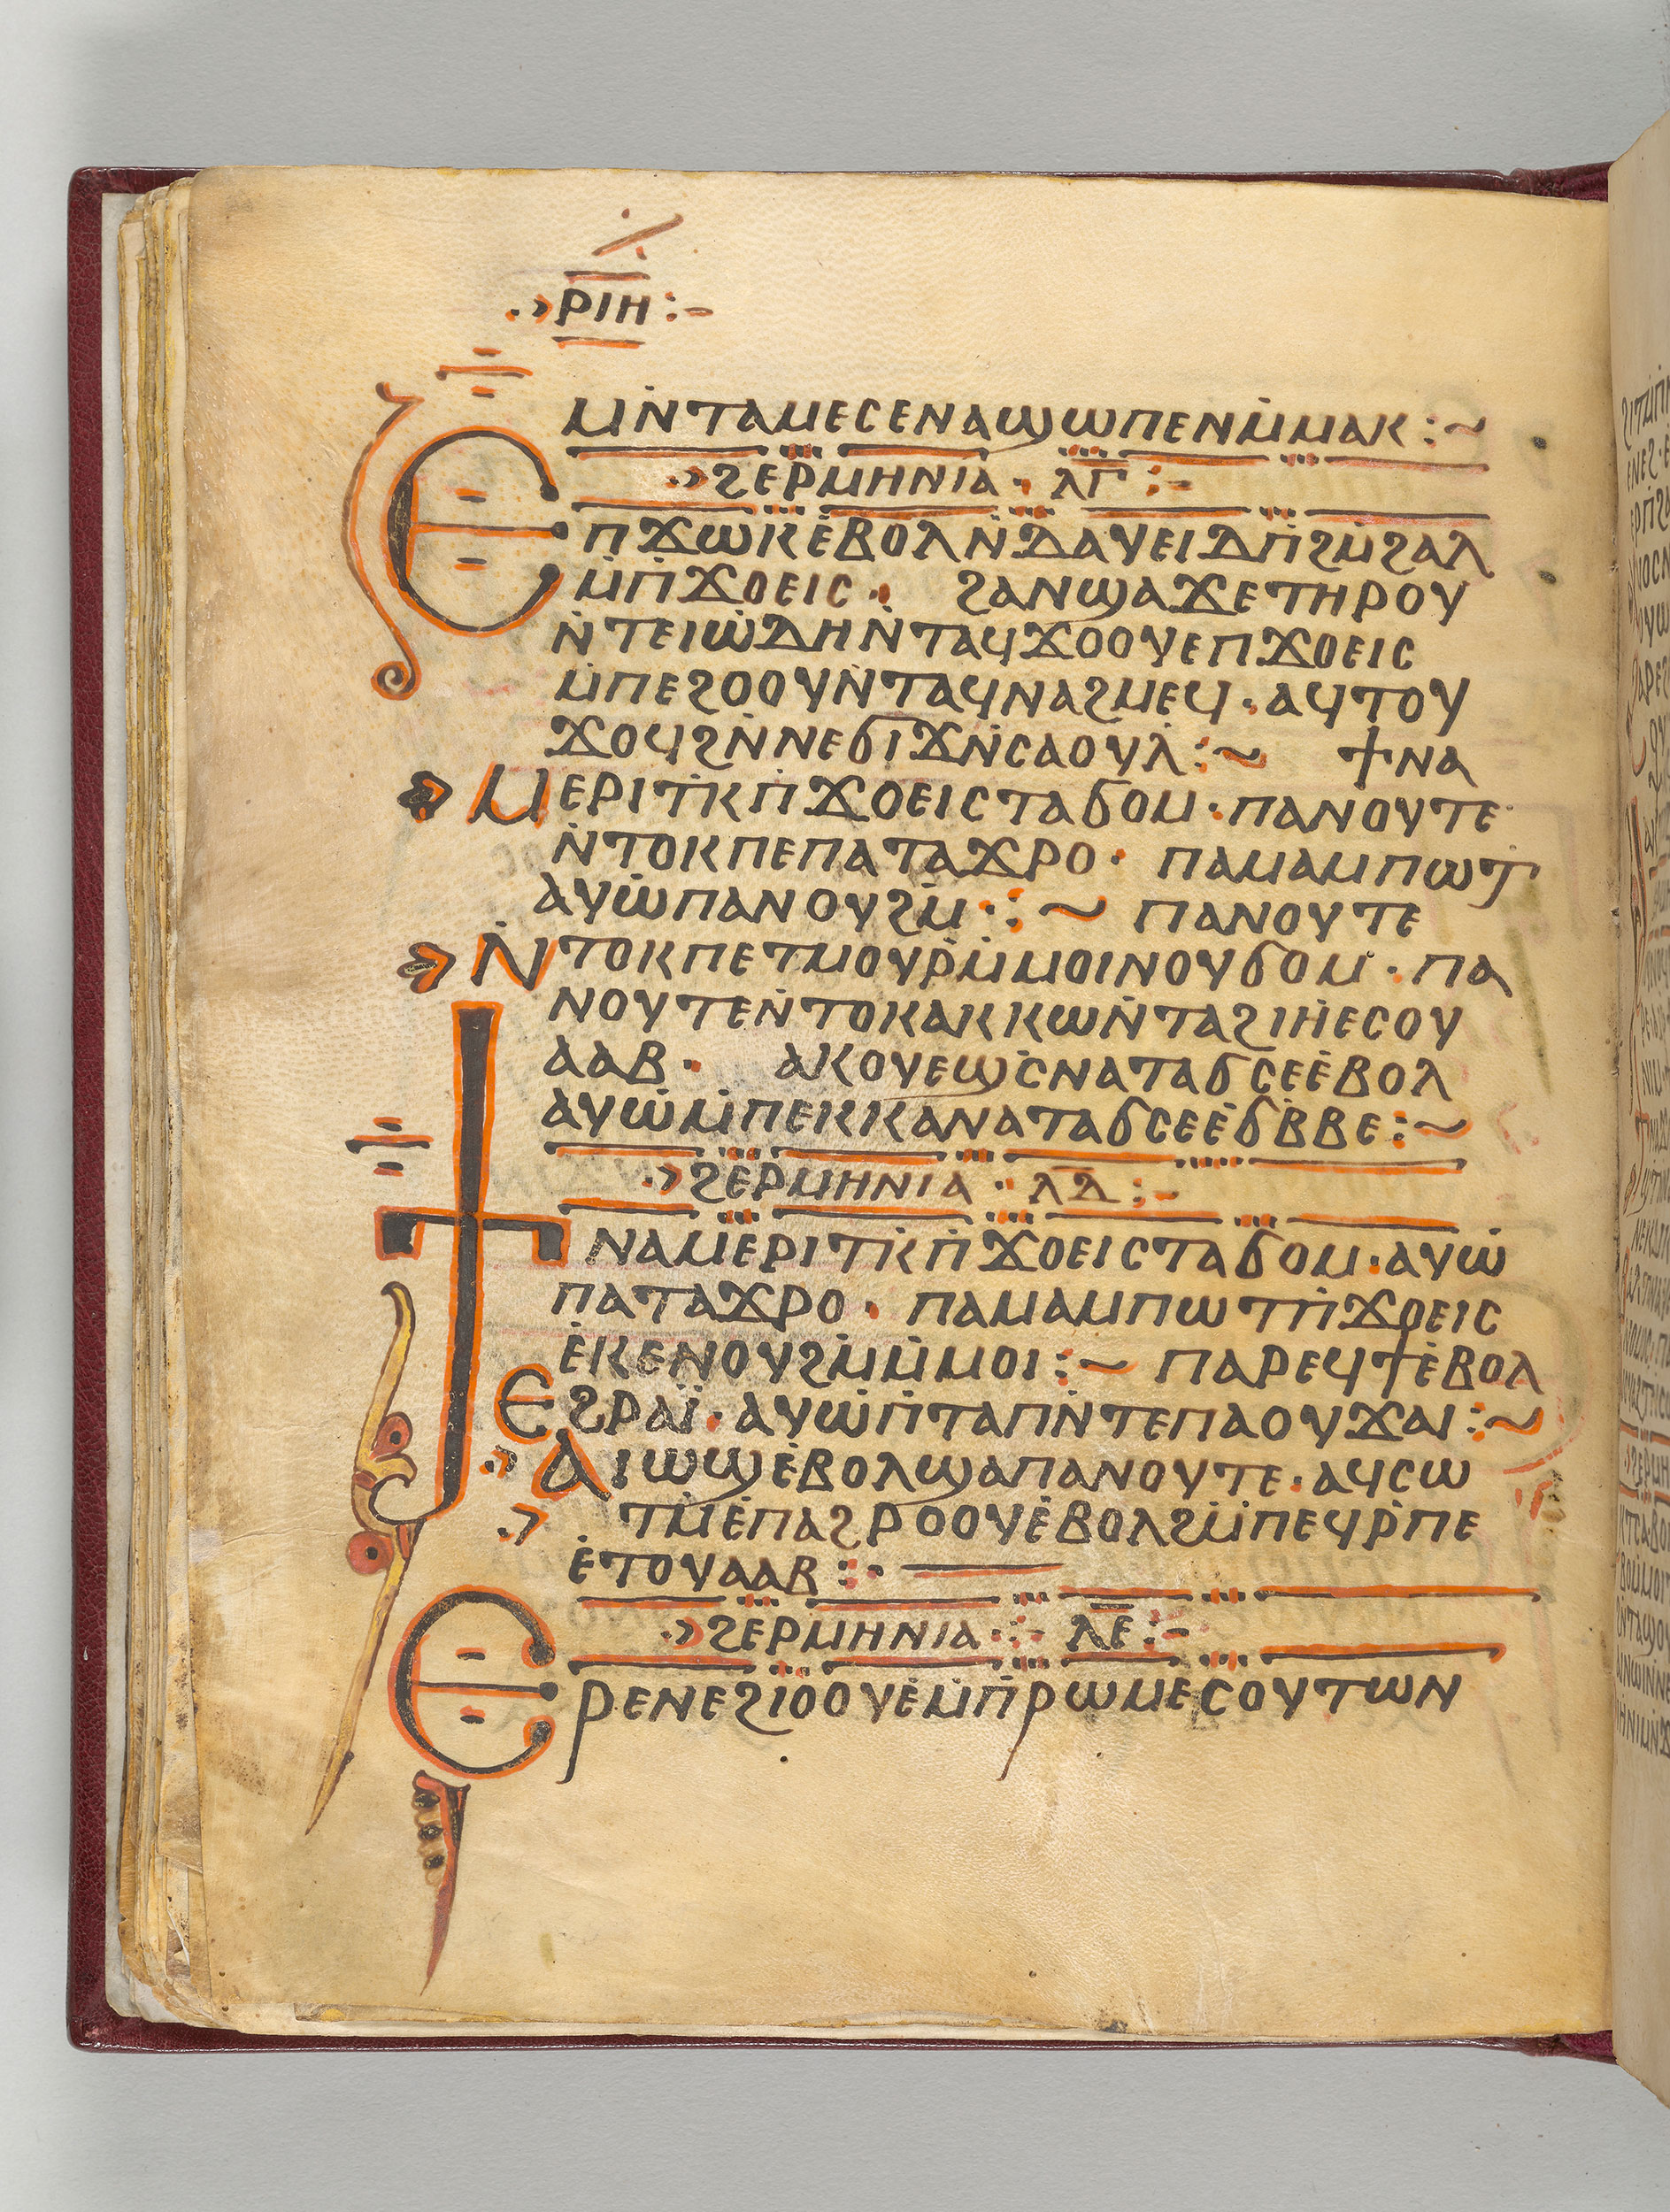 ⲣⲓⲏ
ⲙⲛ̇ⲧⲁⲙⲉⲥⲉⲛⲁϣⲱⲡⲉⲛⲙ̇ⲙⲁⲕ :~
ϩⲉⲣⲙⲏⲛⲓⲁ · ⲗ̅ⲅ̅ :-
Ⲉⲡϫⲱⲕⲉ̇ⲃⲟⲗⲛ̇ⲇⲁⲩⲉⲓⲇⲡ̇ϩⲙ̇ϩⲁⲗ
ⲙ̇ⲡ̇ϫⲟⲉⲓⲥ · ϩⲁⲛϣⲁϫⲉⲧⲏⲣⲟⲩ
ⲛ̇ⲧⲉⲓⲱ̇ⲇⲏⲛ̇ⲧⲁϥϫⲟⲟⲩⲉⲡϫⲟⲉⲓⲥ
ⲙ̇ⲡⲉϩⲟⲟⲩⲛ̇ⲧⲁϥⲛⲁϩⲙⲉϥ · ⲁϥⲧⲟⲩ
ϫⲟϥϩⲛ̇ⲛⲉϭⲓϫⲛ̇ⲥⲁⲟⲩⲗ :~ ϯⲛⲁ
ⲙⲉⲣⲓⲧⲕ̇ⲡ̇ϫⲟⲉⲓⲥⲧⲁϭⲟⲙ · ⲡⲁⲛⲟⲩⲧⲉ
ⲛ̇ⲧⲟⲕⲡⲉⲡⲁⲧⲁϫⲣⲟ · ⲡⲁⲙⲁⲙⲡⲱⲧ
ⲁⲩⲱ̇ⲡⲁⲛⲟⲩϩⲙ̇ ·: ~ ⲡⲁⲛⲟⲩⲧⲉ
ⲛ̇ⲧⲟⲕⲡⲉⲧⲙⲟⲩⲣⲙ̇ⲙⲟⲓⲛⲟⲩϭⲟⲙ · ⲡⲁ
ⲛⲟⲩⲧⲉⲛ̇ⲧⲟⲕⲁⲕⲕⲱⲛ̇ⲧⲁϩⲓⲏ̇ⲉⲥⲟⲩ
ⲁⲁⲃ · ⲁⲕⲟⲩⲉϣⲥ̇ⲛⲁⲧⲁϭⲥⲉⲉ̇ⲃⲟⲗ
ⲁⲩⲱ̇ⲙ̇ⲡⲉⲕⲕⲁⲛⲁⲧⲁϭⲥⲉⲉ̇ϭⲃ̇ⲃⲉ :~
ϩⲉⲣⲙⲏⲛⲓⲁ · ⲗ̅ⲇ̅ :-
ϯⲛⲁⲙⲉⲣⲓⲧⲕ̇ⲡ̇ϫⲟⲉⲓⲥⲧⲁϭⲟⲙ · ⲁⲩⲱ̇
ⲡⲁⲧⲁϫⲣⲟ · ⲡⲁⲙⲁⲙⲡⲱⲧⲡ̇ϫⲟⲉⲓⲥ
ⲉ̇ⲕⲉⲛⲟⲩϩⲙ̇ⲙ̇ⲙⲟⲓ :~ ⲡⲁⲣⲉϥϯⲉ̇ⲃⲟⲗ
ⲉϩⲣⲁⲓ̈ · ⲁⲩⲱ̇ⲡ̇ⲧⲁⲡⲛ̇ⲧⲉⲡⲁⲟⲩϫⲁⲓ :~
ⲁⲓⲱϣⲉ̇ⲃⲟⲗϣⲁⲡⲁⲛⲟⲩⲧⲉ · ⲁϥⲥⲱ
ⲧⲙ̇ⲉ̇ⲡⲁϩⲣⲟⲟⲩⲉ̇ⲃⲟⲗϩⲙ̇ⲡⲉϥⲣ̇ⲡⲉ
ⲉ̇ⲧⲟⲩⲁⲁⲃ :·
ϩⲉⲣⲙⲏⲛⲓⲁ ·:- ⲗ̅ⲉ̅ :-
Ⲉⲣⲉⲛⲉϩⲓⲟⲟⲩⲉ̇ⲙ̇ⲡ̇ⲣⲱⲙⲉⲥⲟⲩⲧⲱⲛ